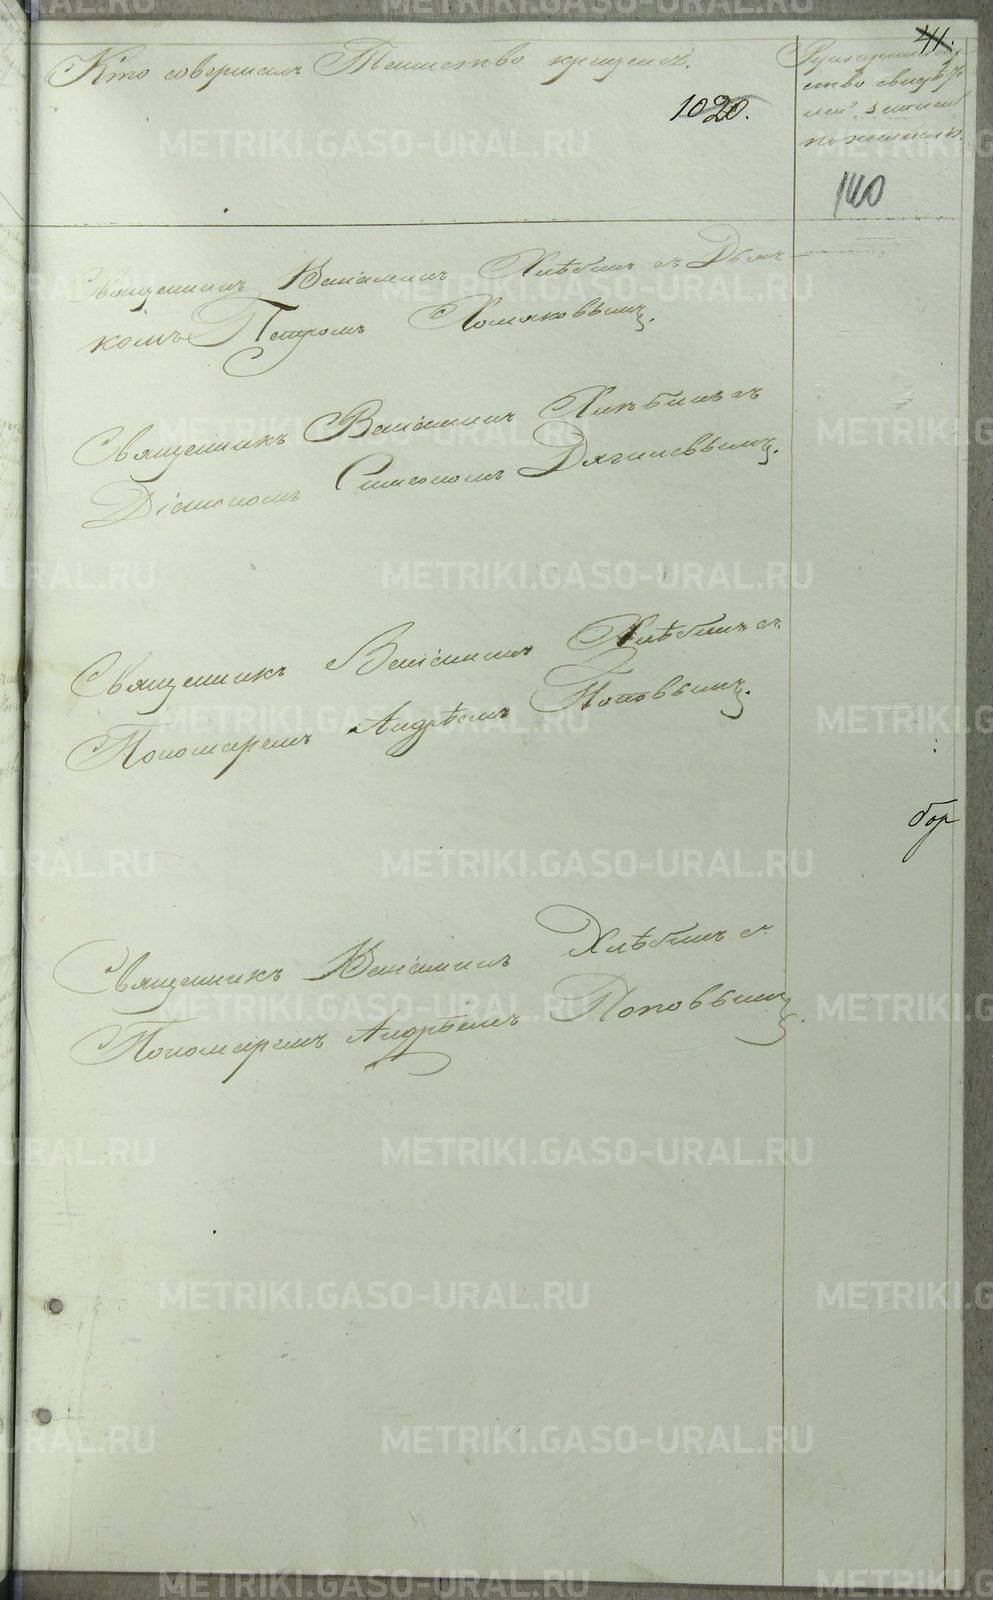 41.
Кто совершалъ Таинство крещенія.
1020.
Рукоприклад
ство свидѣте
лей записи
по желанію.
140
Священникъ Веніаминъ Хлѣбинъ съ Дьяч
комъ Петромъ Хомяковымъ.
Священникъ Веніаминъ Хлѣбинъ съ
Діакономъ Симеономъ Дягилевымъ.
Священникъ Веніаминъ Хлѣбинъ съ
Пономаремъ Андрѣемъ Поповымъ.
бор
Священникъ Веніаминъ Хлѣбинъ съ
Пономаремъ Андрѣемъ Поповымъ.
METRIKI.GASO-URAL.RU